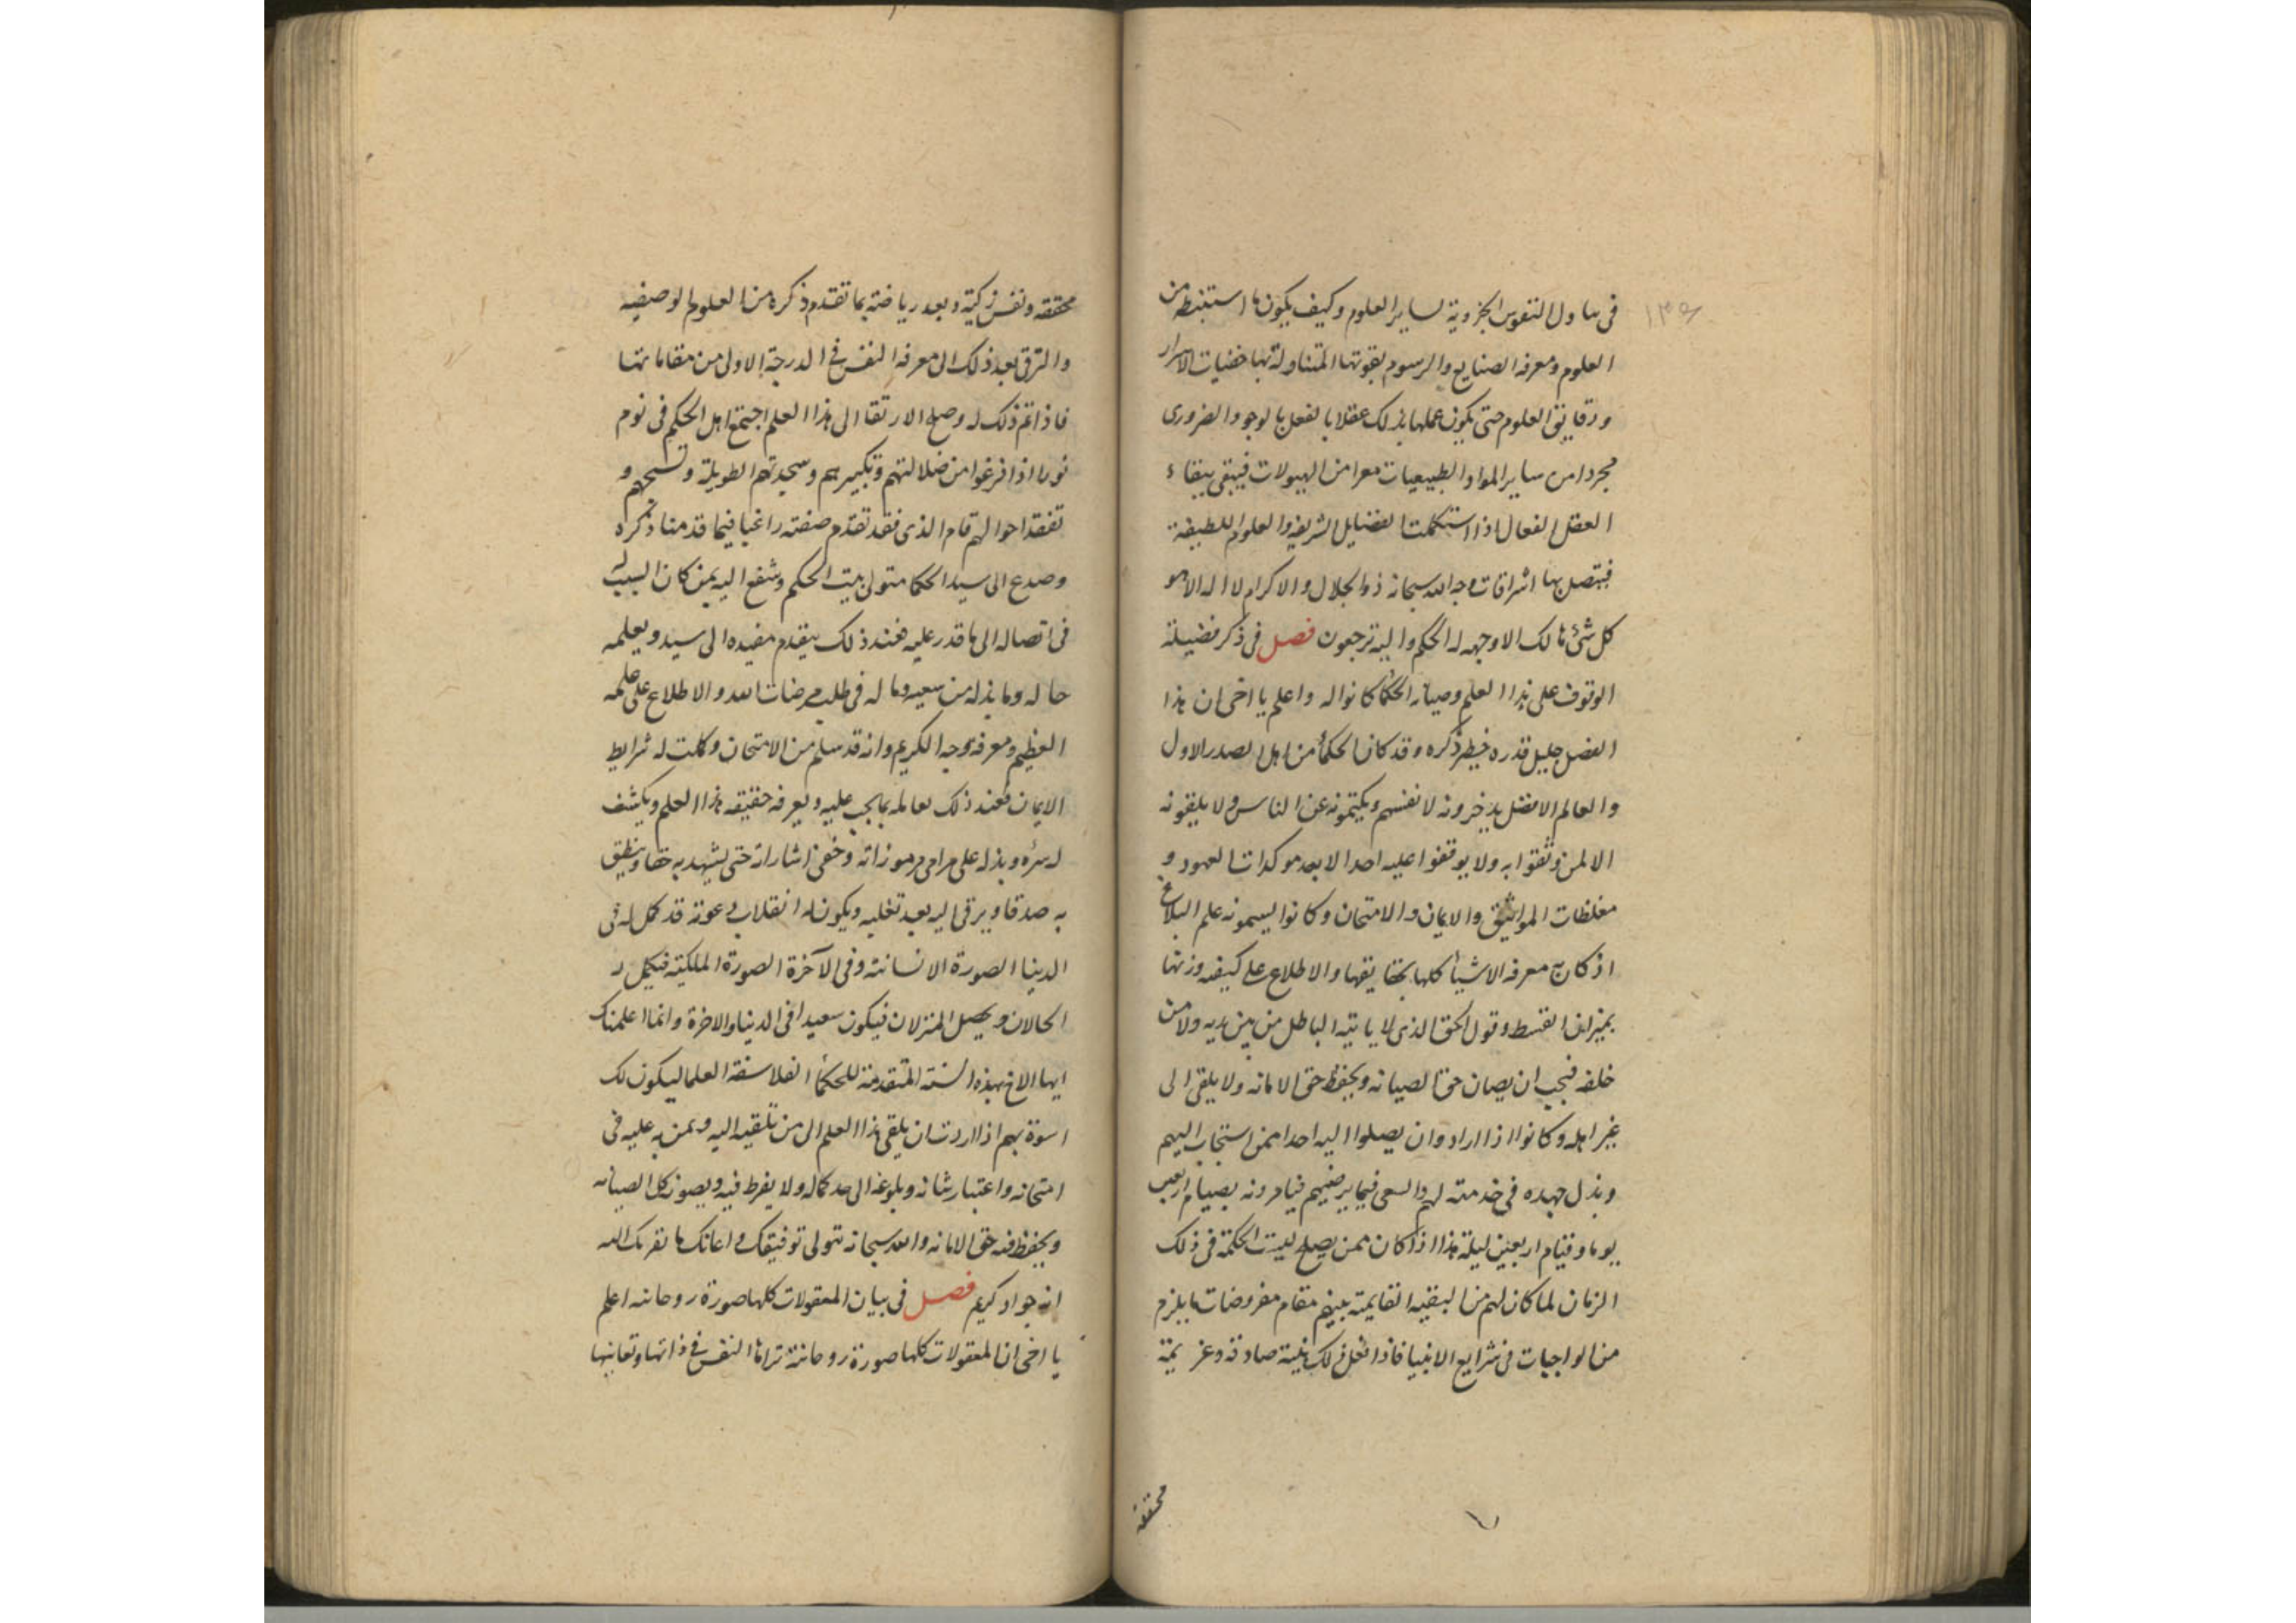 ١٣٩
فى تناول النفوس الجزوية لساير العلوم وكيف يكون ما استنبطه من
العلوم ومعرفه الصنايع والرسوم بقوتها المتناولة بها خفيات الاسرار
ودقايق العلوم حتى يكون عملها بذلك عقلا بالفعل بالوجود الضرورى
مجردا من ساير المواد الطبيعيات معرا من الهيولات فيبقى ببقاء
العقل الفعال اذا استكملت الفضايل الشريفه والعلوم اللطيفة
فيتصل بها اشراقات وجه الله سبحانه ذو الجلال والاكرام لا اله الا هو
كل شئ هالك الا وجهه له الحكم واليه ترجعون فصل فى ذكر فضيلة
الوقوف على هذا العلم وصيانه الحكما كانوا له واعلم يا اخى ان هذا
الفصل جليل قدره خطير ذكره وقد كان الحكمأ من اهل الصدر الاول
والعالم الافضل يدخرونه لانفسهم ويكتمونه عن الناس ولا يلقونه
الا لمن وثقوا به ولا يوقفوا عليه احدا الا بعد موكدات العهود و
مغلظات المواثيق والايمان والامتحان وكانوا يسمونه علم البلاغ
اذ كان به معرفه الاشيأ كلها بحقايقها والاطلاع على كيفيه وزنها
بميزان القسط وقول الحق الذى لا ياتيه الباطل من بين يديه ولا من
خلفه فيجب ان يصان حق الصيانه ويحفظ حق الامانه ولا يلقى الى
غير اهله وكانوا اذا ارادوا ان يصلوا اليه احدا ممن استجاب اليهم
وبذل جهده فى خدمته لهم والسعى فيما يرضيهم فيامرونه بصيام اربعين
يوما وقيام اربعين ليلة هذا اذا كان ممن يصلح لبيت الحكمة فى ذلك
الزمان لما كان لهم من البقيه القايمة بينهم مقام مفروضات ما يلزم
من الواجبات فى شرايع الانبيا فاذا فعل ذلك بنية صادقه وعزيمة
محققه
محققه ونفس زكية وبعد رياضته بما تقدم ذكره من العلوم الوصفيه
والترقى بعد ذلك الى معرفه النفس فى الدرجة الاولى من مقاماتها
فاذا تم ذلك له وصلح الارتقا الى هذا العلم اجتمع اهل الحكم فى نوم
نورا اذا فرغوا من ضلالتهم وتكبيرهم وسجدتهم الطويلة وتسبيحهم و
تفقد احوالهم قام الذى فقد تقدم صفته راغبا فيما قدمنا ذكره
وصدع الى سيد الحكما متولى بيت الحكم وشفع اليه بمن كان السبب له
فى اتصاله الى ما قدر عليه فعند ذلك يتقدم مفيده الى سيده ويعلمه
حاله وما بذله من سعيه وماله فى طلب مرضات الله والاطلاع على علمه
العظيم ومعرفه وجه الكريم وانه قد سلم من الامتحان وكملت له شرايط
الايمان فعند ذلك يعامله بما يجب عليه ويعرفه حقيقه هذا العلم ويكشف
له سره ويدله على مرامى مرموزاته وخفى اشاراته حتى يشهد به حقا وينطق
به صدقا ويرقى اليه بعد تغلبه ويكون له انقلاب دعوته قد كمل له فى
الدينا الصورة الانسانته وفى الآخرة الصورة الملكيته فيكمل له
الحالان ويحصل المنزلان فيكون سعيدا فى الدينا والاخرة وانما اعلمناك
ايها الاخ بهذه السنة المتقدمة للحكمأ الفلاسفة العلما ليكون لك
اسوة بهم اذا اردت ان يلقى هذا العلم الى من تلقيه اليه وتمن به عليه فى
امتحانه واعتبار شانه وبلوغه الى حد كماله ولا يفرط فيه ويصونه كل الصيانه
ويحفظ فيه حق الامانه والله سبحانه تتولى توفيقك واعانك ما يقربك الله
انه جواد كريم فصل فى بيان المعقولات كلها صورة روحانته اعلم
يا اخى ان المعقولات كلها صورة روحانته تراها النفس فى ذاتها وتعاينها